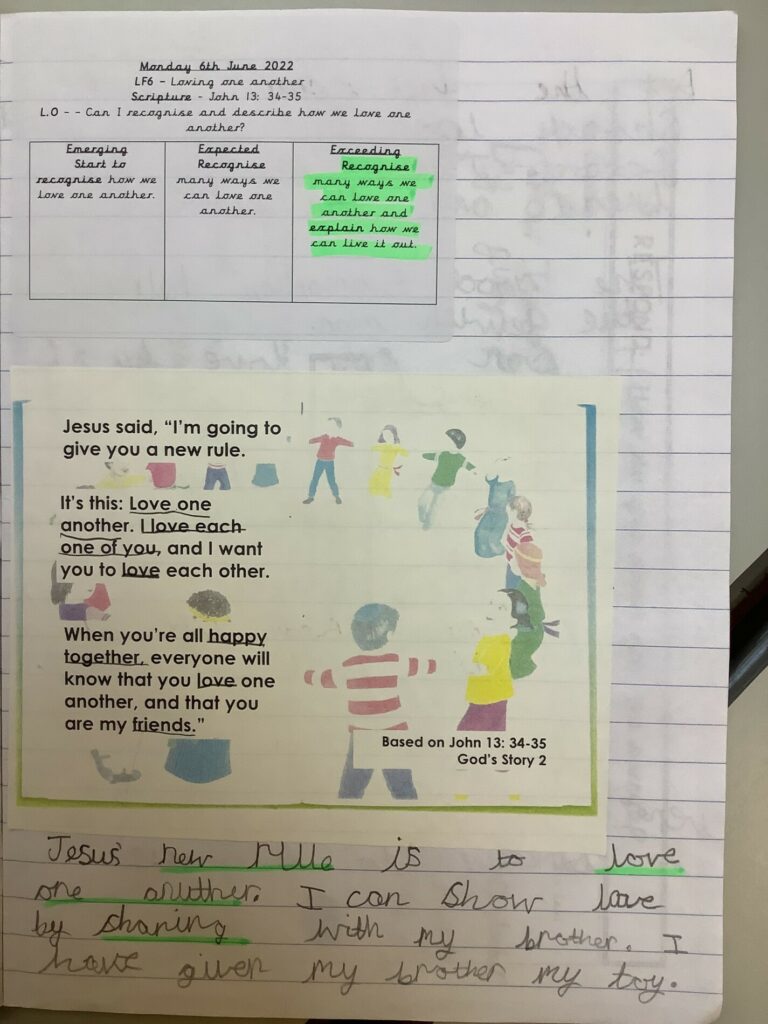 Monday 6th June 2022
LF6 - Loving one another
Scripture - John 13: 34-35
L.O - - Can I recognise and describe how we love one
another?
Emerging
Start to
recognise how we
love one another.
Expected
Recognise
many ways we
can love one
another.
Exceeding
Recognise
many ways we
can love one
another and
explain how we
can live it out.
Jesus said, “I’m going to
give you a new rule.
It’s this: Love one
another. I love each
one of you, and I want
you to love each other.
When you’re all happy
together, everyone will
know that you love one
another, and that you
are my friends.”
Based on John 13: 34-35
God’s Story 2
Jesus' new rule is to love
one another. I can show love
by sharing with my brother. I
have given my brother my toy.